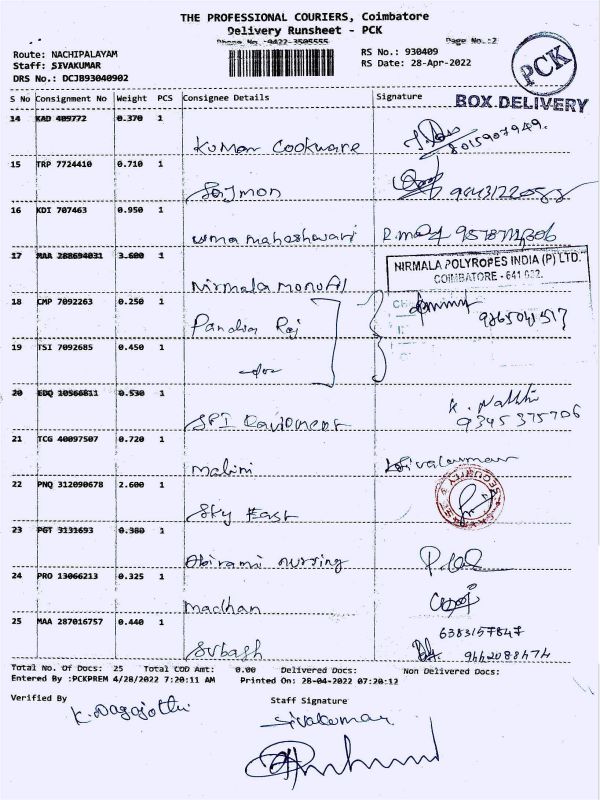 THE PROFESSIONAL COURIERS, Coimbatore
Delivery Runsheet - PCK
Phone No :0422-3505555 Page No.:2
Route: NACHIPALAYAM RS No.: 930409
Staff: SIVAKUMAR RS Date: 28-Apr-2022
DRS No.: DCJB93040902
PCK
BOX DELIVERY
S No Consignment No Weight PCS Consignee Details Signature
14 KAD 409772 0.370 1
Kumar Cookware 8015907949.
15 TRP 7724410 0.710 1
16 KDI 707463 0.950 1
uma maheshwari
17 MAA 288694031 3.600 1
NIRMALA POLYROPES INDIA (P) LTD.
COIMBATORE - 641 032.
Nirmala
18 CMP 7092263 0.250 1
Pandia Raj 9865041517
19 TSI 7092685 0.450 1
-do-
20 EDQ 10566811 0.530 1
SPI 9345375706
21 TCG 40097507 0.720 1
Malini Sivakumar
22 PNQ 312090678 2.600 1
SECURITY
Sky East
23 PGT 3131693 0.380 1
Abirami nursing
24 PRO 13066213 0.325 1
Madhan
25 MAA 287016757 0.440 1
6383157847
Subash 9442088474
Total No. Of Docs: 25 Total COD Amt: 0.00 Delivered Docs: Non Delivered Docs:
Entered By :PCKPREM 4/28/2022 7:20:11 AM Printed On: 28-04-2022 07:20:12
Verified By Staff Signature
K. Nagajothi Sivakumar